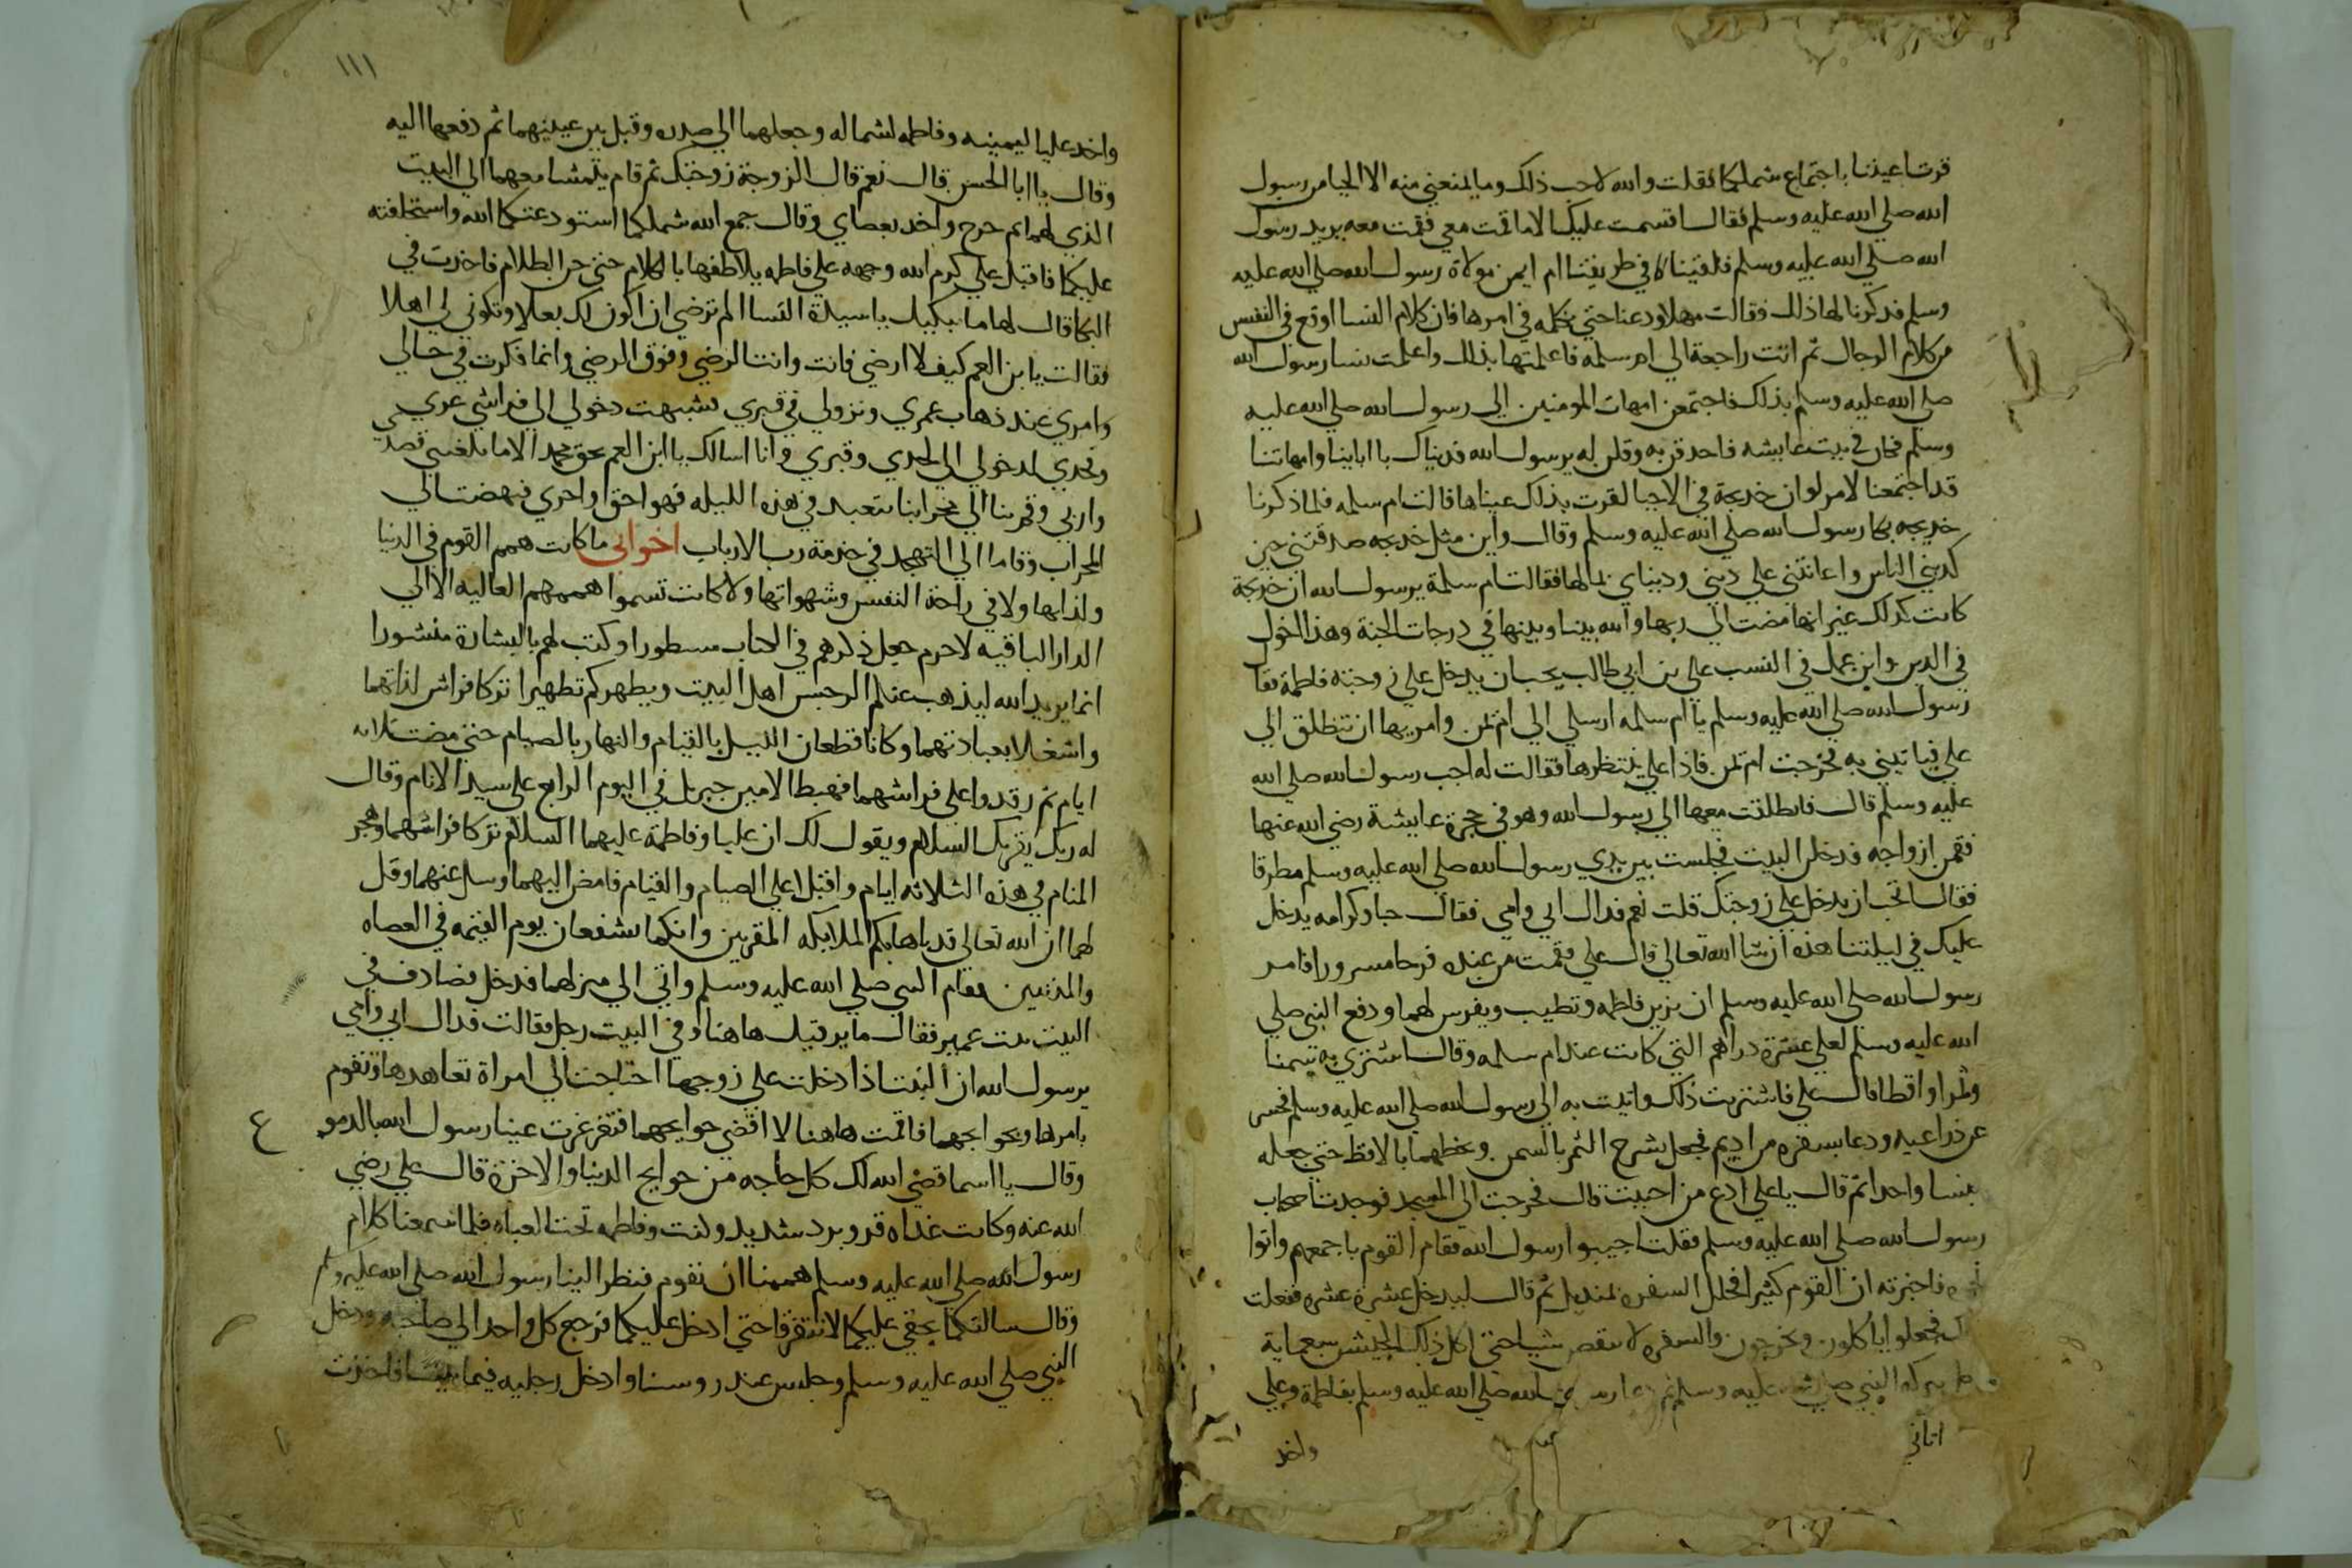 قرت اعيننا باجتماع شملكما فقلت والله لاحب ذلك وما يمنعني منه الا الحيا من رسول
الله صلي الله عليه وسلم فقال اقسمت عليك الا ما قمت معي فقمت معه يريد رسول
الله صلي الله عليه وسلم فلقيتنا في طريقنا ام ايمن مولاة رسول الله صلي الله عليه
وسلم فذكرنا لها ذلك فقالت مهلا ودعنا حتي نكلمه في امرها فان كلام النسا اوقع في النفس
من كلام الرجال ثم اتت راجعة الي ام سلمه فاعلمتها بذلك واعلمت نسا رسول الله
صلي الله عليه وسلم بذلك فاجتمعن امهات المومنين الي رسول الله صلي الله عليه
وسلم فكان في بيت عايشه فاحدقن به وقلن له يرسول الله فديناك بااباينا وامهاتنا
قد اجتمعنا لامر لو ان خديجة في الاحيا لقرت بذلك عيناها قالت ام سلمه فلما ذكرنا
خديجه بكا رسول الله صلي الله عليه وسلم وقال واين مثل خديجه صدقتني حين
كدبني الناس واعانتني علي ديني ودنياي بمالها فقالت ام سلمة يرسول الله ان خديجة
كانت كدلك غير انها مضت الي ربها والله بيننا وبينها في درجات الجنة وهذا اخوك
في الدين وابن عمك في النسب علي بن ابي طالب يحب ان يدخل علي زوجته فاطمة فقال
رسول الله صلي الله عليه وسلم يا ام سلمه ارسلي الي ام ايمن وامريها ان تنطلق الي
علي فياتيني به فخرجت ام ايمن فاذا علي ينتظرها فقالت له اجب رسول الله صلي الله
عليه وسلم قال فانطلقت معها الي رسول الله وهو في حجرة عايشة رضي الله عنها
فقمن ازواجه فدخلن البيت فجلست بين يدي رسول الله صلي الله عليه وسلم مطرقا
فقال اتحب ان يدخل علي زوجتك قلت نعم فداك ابي وامي فقال حبا وكرامه يدخل
عليك في ليلتنا هذه ان شا الله تعالي قال علي فقمت من عنده فرحا مسرورا فامر
رسول الله صلي الله عليه وسلم ان يزين فاطمه وتطيب ويفرس لهما ودفع النبي صلي
الله عليه وسلم لعلي عشرة دراهم التي كانت عند ام سلمه وقال اشتري به تمرا
وتمرا واقطا قال علي فاشتريت ذلك واتيت به الي رسول الله صلي الله عليه وسلم فحسر
عن ذراعيه ودعا بسفره من اديم فجعل يشرح الثمر بالسمن ويخلطهما بالاقط حتي جعله
واحدا ثم قال يا علي ادع من احببت قال فخرجت الي المسجد فوجدت اصحاب
رسول الله صلي الله عليه وسلم فقلت اجيبوا رسول الله فقام القوم باجمعهم واتوا
فاخبرته ان القوم كثير فجلل السفره بمنديل ثم قال ليدخل عشرة عشره ففعلت
فجعلوا ياكلون ويخرجون والسفره لا ينقص شيا حتي اكل ذلك الجيش سبعماية
بركة النبي صلي عليه وسلم ثم دعا رسول الله صلي الله عليه وسلم بفاطمة وعلي
واخد
اتاني
١١١
واخد عليا ليمينه وفاطمه لشماله وجعلهما الي صدره وقبل بين عينيهما ثم دفعها اليه
وقال يا ابا الحسن قال نعم قال الزوجة زوجتك ثم قام يتمشا معهما الي البيت
الذي لهما ثم خرج واخد بعضاي وقال جمع الله شملكما استودعتكما الله واستخلفته
عليكما فاقبل علي كرم الله وجهه علي فاطمه يلاطفها بالكلام حتي جن الظلام فاخذت في
البكا قال لها ما يبكيك يا سيدة النسا الم ترضي ان اكون لك بعلا وتكوني لي اهلا
فقالت يا بن العم كيف لا ارضي فانت وانت الرضي وفوق الرضي وانما فكرت في حالي
وامري عند ذهاب عمري ونزولي في قبري شبهت دخولي الي فراشي
لدخولي الي لحدي وقبري وانا اسالك يا ابن العم بحق محمد الا ما بلغتني قصدي
واربي وقم بنا الي محرابنا نتعبد في هذه الليله فهو احق واحري فنهضت الي
المحراب وقاما الي التهجد في خدمة رب الارباب اخواني ما كانت همم القوم في الدنيا
ولذاتها ولا في راحة النفس وشهواتها ولا كانت تسموا هممهم العاليه الا الي
الدار الباقيه لاجرم جعل ذكرهم في الكتاب مسطورا وكتب لهم بالبشارة منشورا
انما يريد الله ليذهب عنكم الرجس اهل البيت ويطهركم تطهيرا تركا فراش لذاتهما
واشغلا بعبادتهما وكانا قطعان الليل بالقيام والنهار بالصيام حتي مضت ثلاثه
ايام ثم رقدوا علي فراشهما فهبط الامين جبريل في اليوم الرابع علي سيد الانام وقال
له ربك يقريك السلام ويقول لك ان عليا وفاطمة عليهما السلام تركا فراشهما وهجر
المنام في هذه الثلاثه ايام واقبلا علي الصيام والقيام فامض اليهما وسل عنهما وقل
لهما ان الله تعالي قد باها بكم الملايكه المقربين وانكما تشفعان يوم القيمه في العصاه
والمذنبين فقام النبي صلي الله عليه وسلم واتي الي منزلهما فدخل فصادف في
البيت بنت عمير فقال ما يوقفك هاهنا وفي البيت رجل فقالت فداك ابي وامي
يرسول الله ان البنت اذا دخلت علي زوجها احتاجت الي امراة تعاهدها وتقوم
بامرها وبحوايجهما فاقمت هاهنا لا اقضي حوايجهما فتغرغرت عينا رسول الله بالدموع
وقال يا اسما قضي الله لك كل حاجه من حوايج الدنيا والاخرة قال علي رضي
الله عنه وكانت غداه قر وبرد شديد وكنت وفاطمه تحت العباه فلما سمعنا كلام
رسول الله صلي الله عليه وسلم هممنا ان نقوم فنظر الينا رسول الله صلي الله عليه وسلم
وقال سالتكما بحقي عليكما لا تفترقا حتي ادخل عليكما فرجع كل واحد الي صاحبه ودخل
النبي صلي الله عليه وسلم وجلس عند روسنا وادخل رجليه فيما بيننا فاخذت